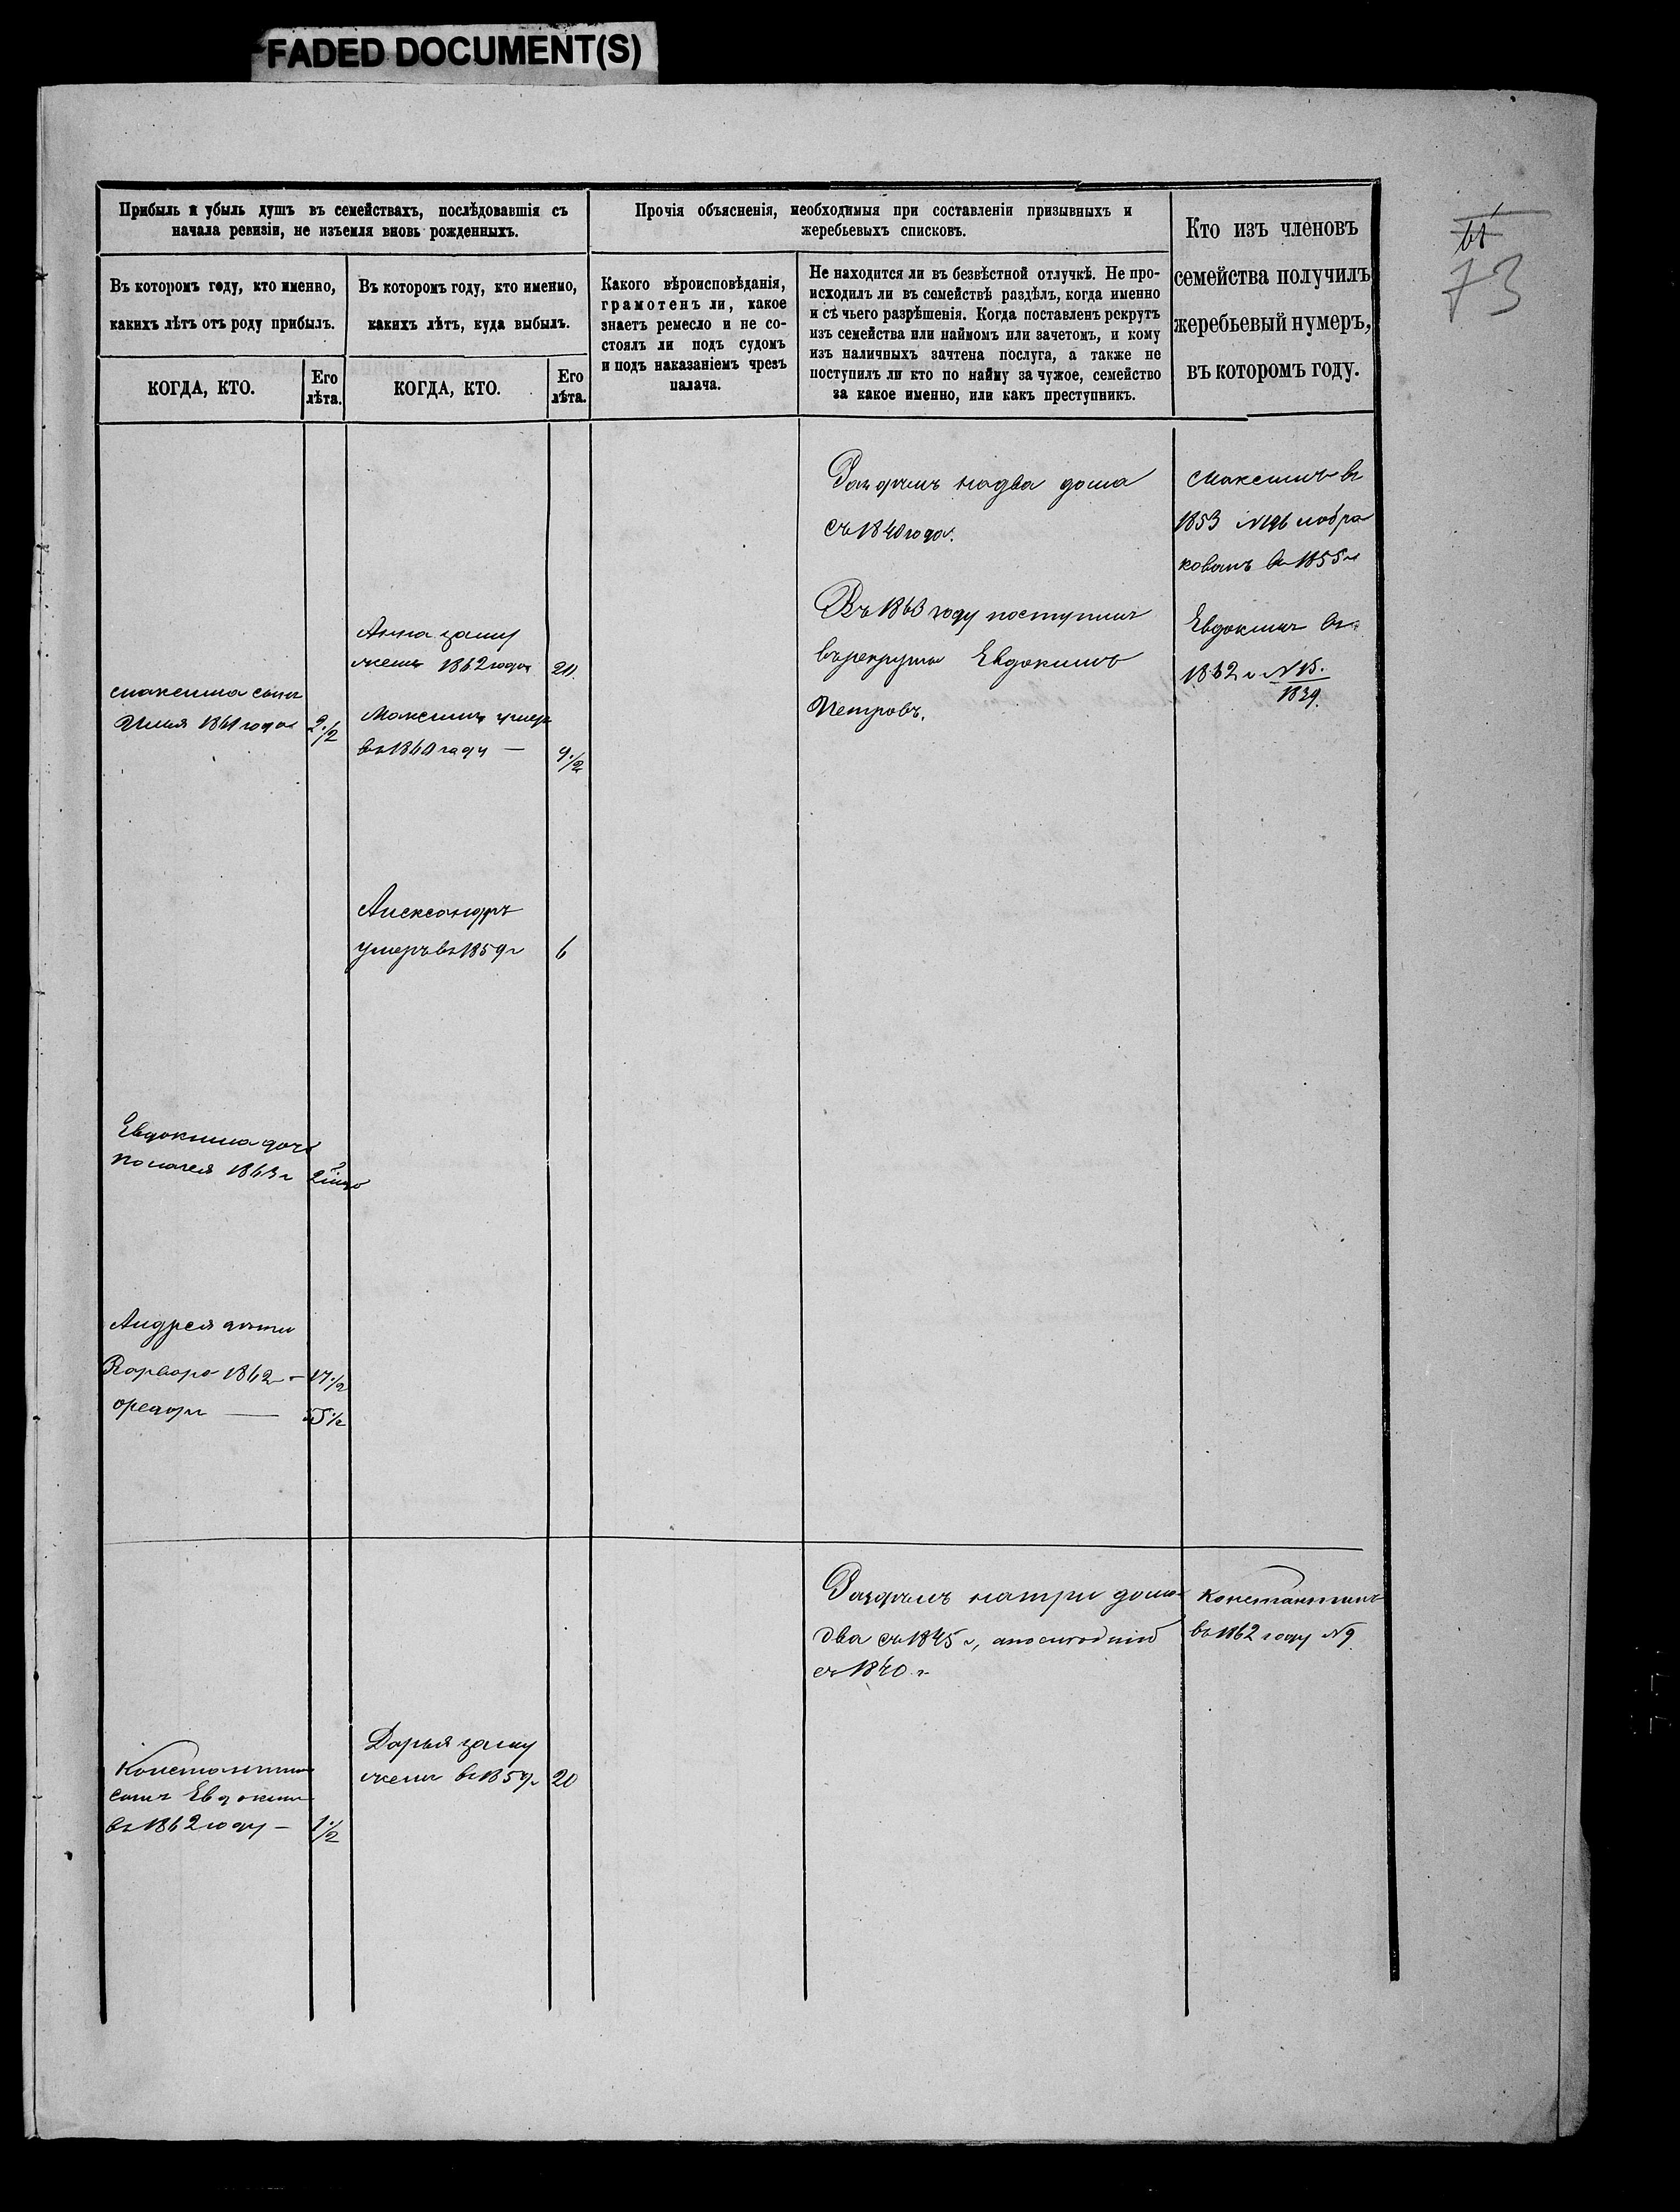 FADED DOCUMENT(S)
73
Прибыль и убыль душъ въ семействахъ, послѣдовавшія съ
начала ревизіи, не изъемля вновь рожденныхъ.
Прочія объясненія, необходимыя при составленіи призывныхъ и
жеребьевыхъ списковъ.
Кто изъ членовъ
семейства получилъ
жеребьевый нумеръ,
въ которомъ году.
Въ которомъ году, кто именно,
какихъ лѣтъ отъ роду прибылъ.
Въ которомъ году, кто именно,
какихъ лѣтъ, куда выбылъ.
Какого вѣроисповѣданія,
грамотенъ ли, какое
знаетъ ремесло и не со-
стоялъ ли подъ судомъ
и подъ наказаніемъ чрезъ
палача.
Не находится ли въ безвѣстной отлучкѣ. Не про-
исходилъ ли въ семействѣ раздѣлъ, когда именно
и съ чьего разрѣшенія. Когда поставленъ рекрутъ
изъ семейства или наймомъ или зачетомъ, и кому
изъ наличныхъ зачтена послуга, а также не
поступилъ ли кто по найму за чужое, семейство
за какое именно, или какъ преступникъ.
КОГДА, КТО.
Его
лѣта.
КОГДА, КТО.
Его
лѣта.
Раздѣлъ на два дома
съ 1840 года.
Максимъ въ
1853
кованъ въ 1855 г
Въ 1863 году поступилъ
въ рекруты Евдокимъ
Петровъ.
Евдокимъ въ
1862 г N 15.
1839.
Анна заму
жемъ 1862 года
Максима сынъ
Илья 1861 года 2 1/2
Максимъ умеръ
въ 1860 году — 9 1/2
Александръ
умеръ въ 1859 г 6
Евдокима дочь
1863 г
Андрея дѣти
Варвара 1862 – 17 1/2
Константинъ
въ 1862 году N 9
Раздѣлъ на три дома
два съ 1845 г, а послѣдній
съ 1840 г
Дарья заму
жемъ въ 1859 г 20
Константина
сынъ Евдокимъ
въ 1862 году – 1 1/2